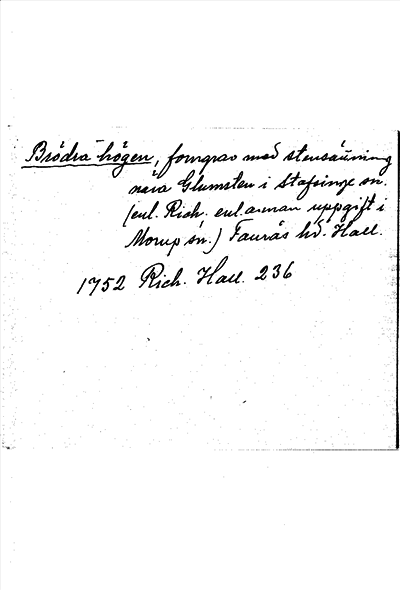 Brödra-högen, forngrav med stensättning
nära Glumsten i Stafsinge sn.
(enl. Rich. enl. annan uppgift i
Morup sn.) Faurås hd. Hall.
1752 Rich. Hall. 236